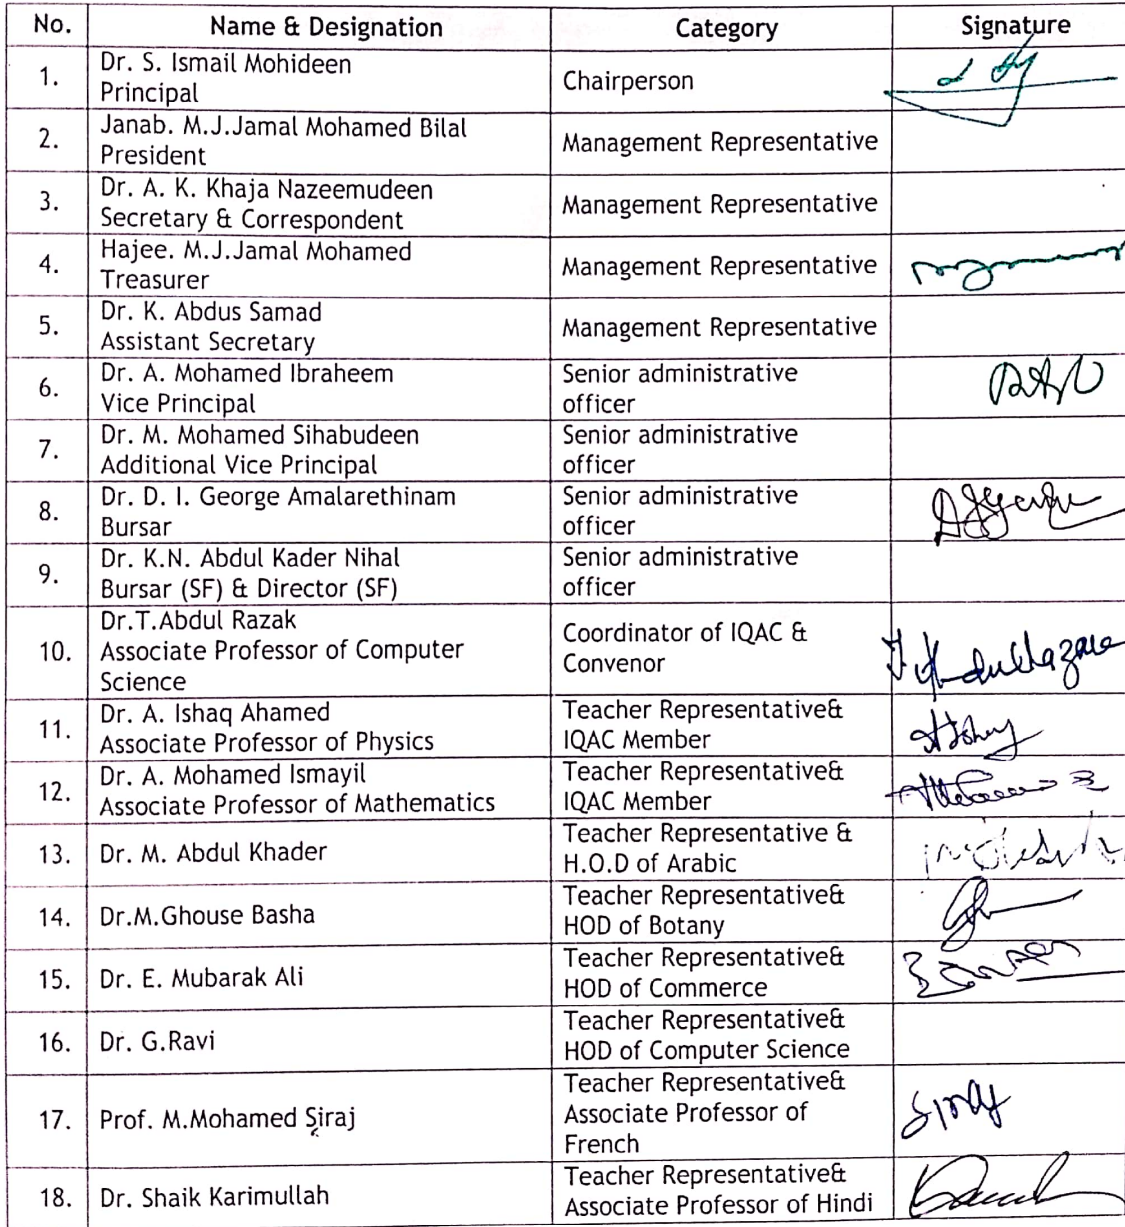 No. Name & Designation Category Signature
1. Dr. S. Ismail Mohideen
Principal
Chairperson
2. Janab. M.J.Jamal Mohamed Bilal
President
Management Representative
3. Dr. A. K. Khaja Nazeemudeen
Secretary & Correspondent
Management Representative
4. Hajee. M.J.Jamal Mohamed
Treasurer
Management Representative
5. Dr. K. Abdus Samad
Assistant Secretary
Management Representative
6. Dr. A. Mohamed Ibraheem
Vice Principal
Senior administrative
officer
7. Dr. M. Mohamed Sihabudeen
Additional Vice Principal
Senior administrative
officer
8. Dr. D. I. George Amalarethinam
Bursar
Senior administrative
officer
9. Dr. K.N. Abdul Kader Nihal
Bursar (SF) & Director (SF)
Senior administrative
officer
10. Dr.T.Abdul Razak
Associate Professor of Computer
Science
Coordinator of IQAC &
Convenor
11. Dr. A. Ishaq Ahamed
Associate Professor of Physics
Teacher Representative&
IQAC Member
12. Dr. A. Mohamed Ismayil
Associate Professor of Mathematics
Teacher Representative&
IQAC Member
13. Dr. M. Abdul Khader
Teacher Representative &
H.O.D of Arabic
14. Dr.M.Ghouse Basha
Teacher Representative&
HOD of Botany
15. Dr. E. Mubarak Ali
Teacher Representative&
HOD of Commerce
16. Dr. G.Ravi
Teacher Representative&
HOD of Computer Science
17. Prof. M.Mohamed Siraj
Teacher Representative&
Associate Professor of
French
18. Dr. Shaik Karimullah
Teacher Representative&
Associate Professor of Hindi